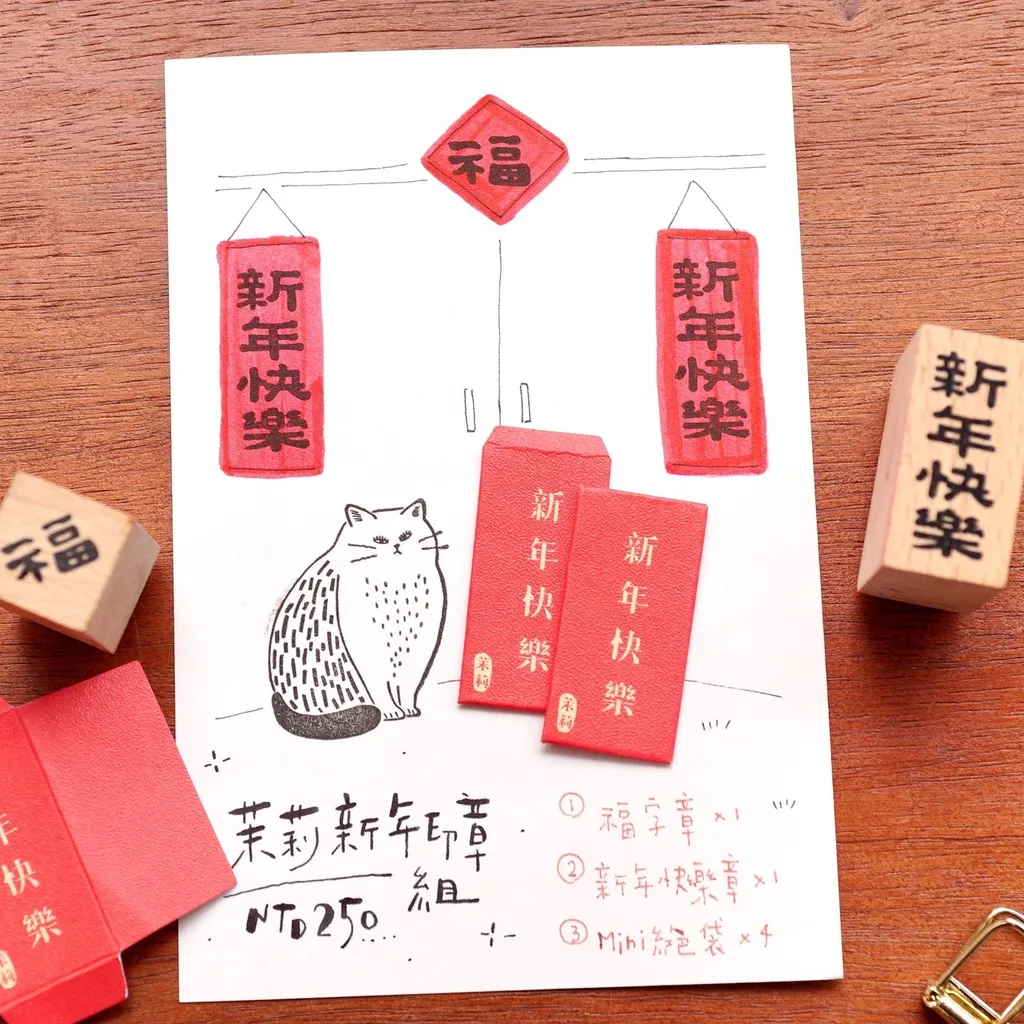 福
新年快樂
新年快樂
新年快樂
福
新年快樂
茉莉
新年快樂
茉莉
年快樂
茉莉
茉莉新年印章組
NTD250....
① 福字章 x1
② 新年快樂章 x1
③ Mini紅包袋 x4